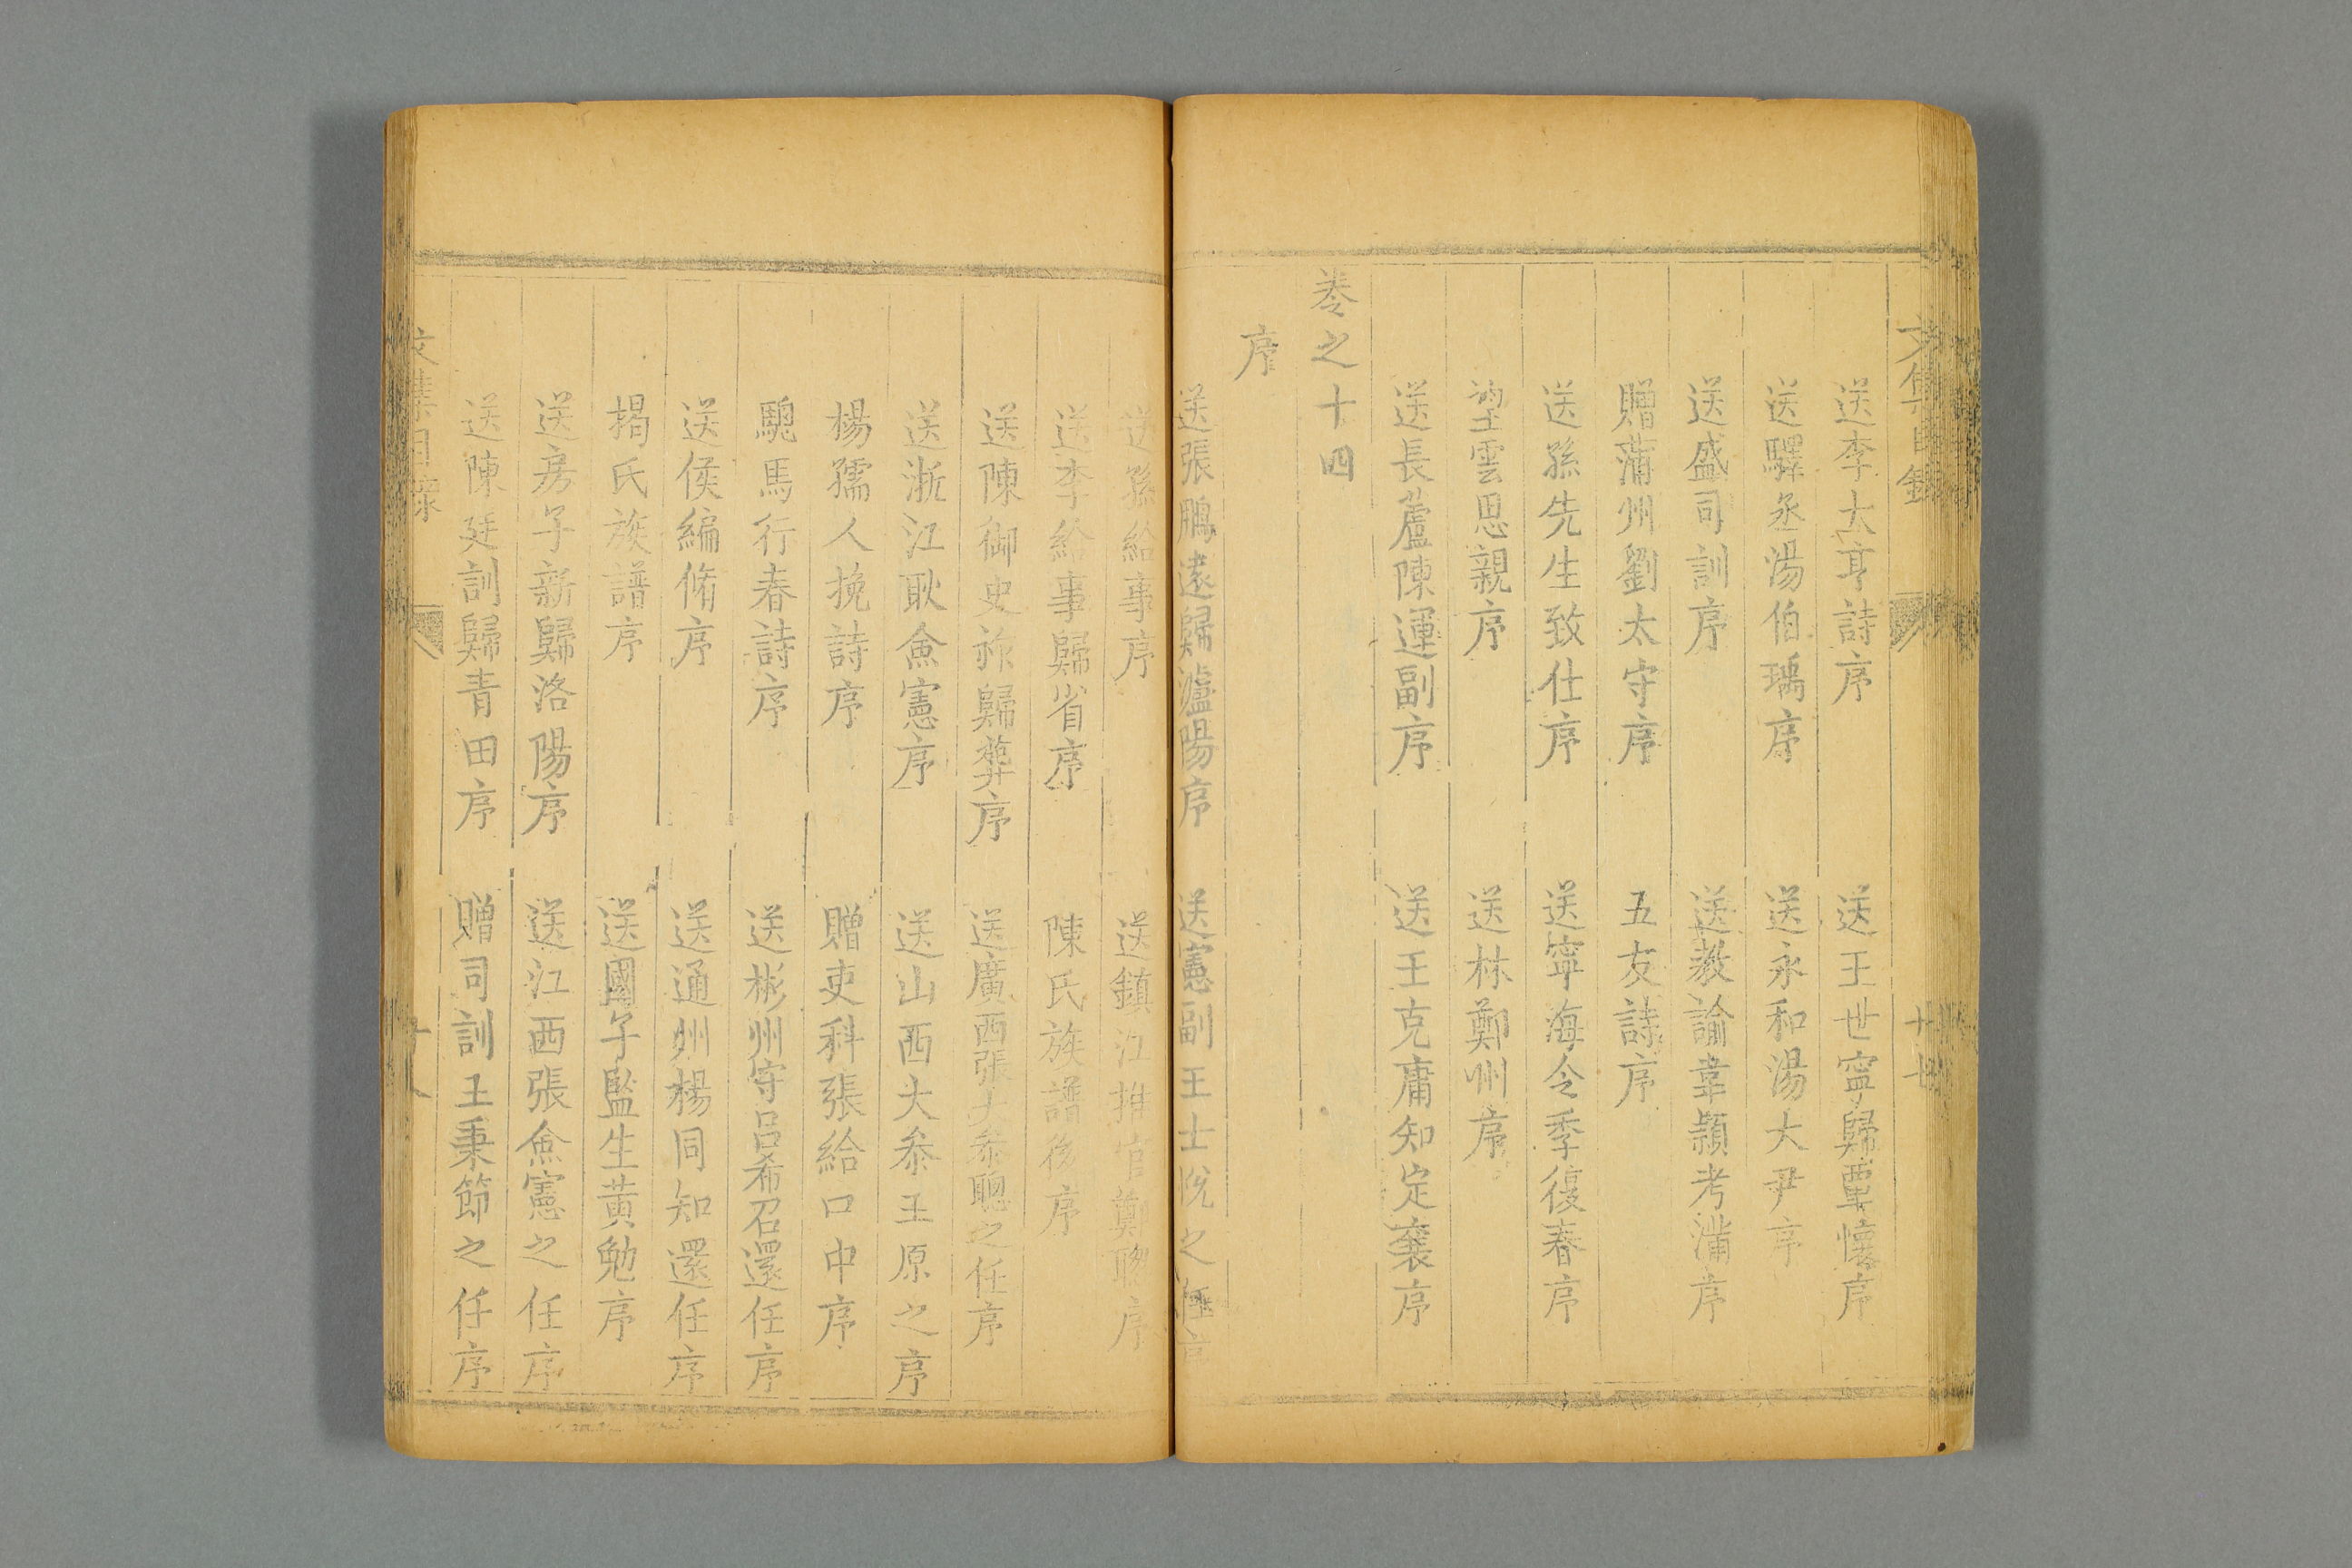 文集目錄
十七
送李大亨詩序 送王世寧歸覃懷序
送驛丞湯伯瑀序 送永和湯大尹序
送盛司訓序 送教諭韋顯考滿序
贈蒲州劉太守序 五友詩序
送孫先生致仕序 送寧海令季復春序
望雲思親序 送林鄭州序
送長蘆陳運副序 送王克庸知定襄序
卷之十四
序
送張鵬遠歸瀘陽序 送憲副王士悅之任序
送孫給事序 送鎮江推官鄭聰序
送李給事歸省序 陳氏族譜後序
送陳御史祚歸葬序 送廣西張大叅聰之任序
送浙江耿僉憲序 送山西大叅王原之序
楊孺人挽詩序 贈吏科張給口中序
驄馬行春詩序 送彬州守呂希召還任序
送侯編脩序 送通州楊同知還任序
揭氏族譜序 送國子監生黃勉序
送房子新歸洛陽序 送江西張僉憲之任序
送陳廷訓歸青田序 贈司訓王秉節之任序
文集目錄